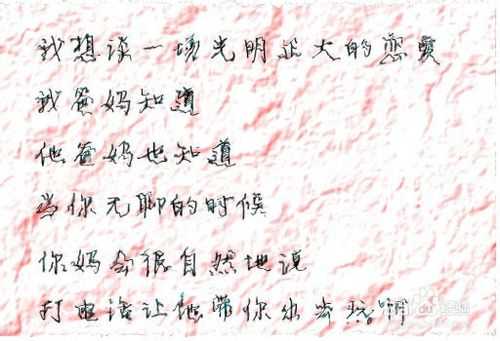 我想谈一场光明正大的恋爱
我爸妈知道
他爸妈也知道
当你无聊的时候
你妈会很自然地说
打电话让他带你出去玩啊